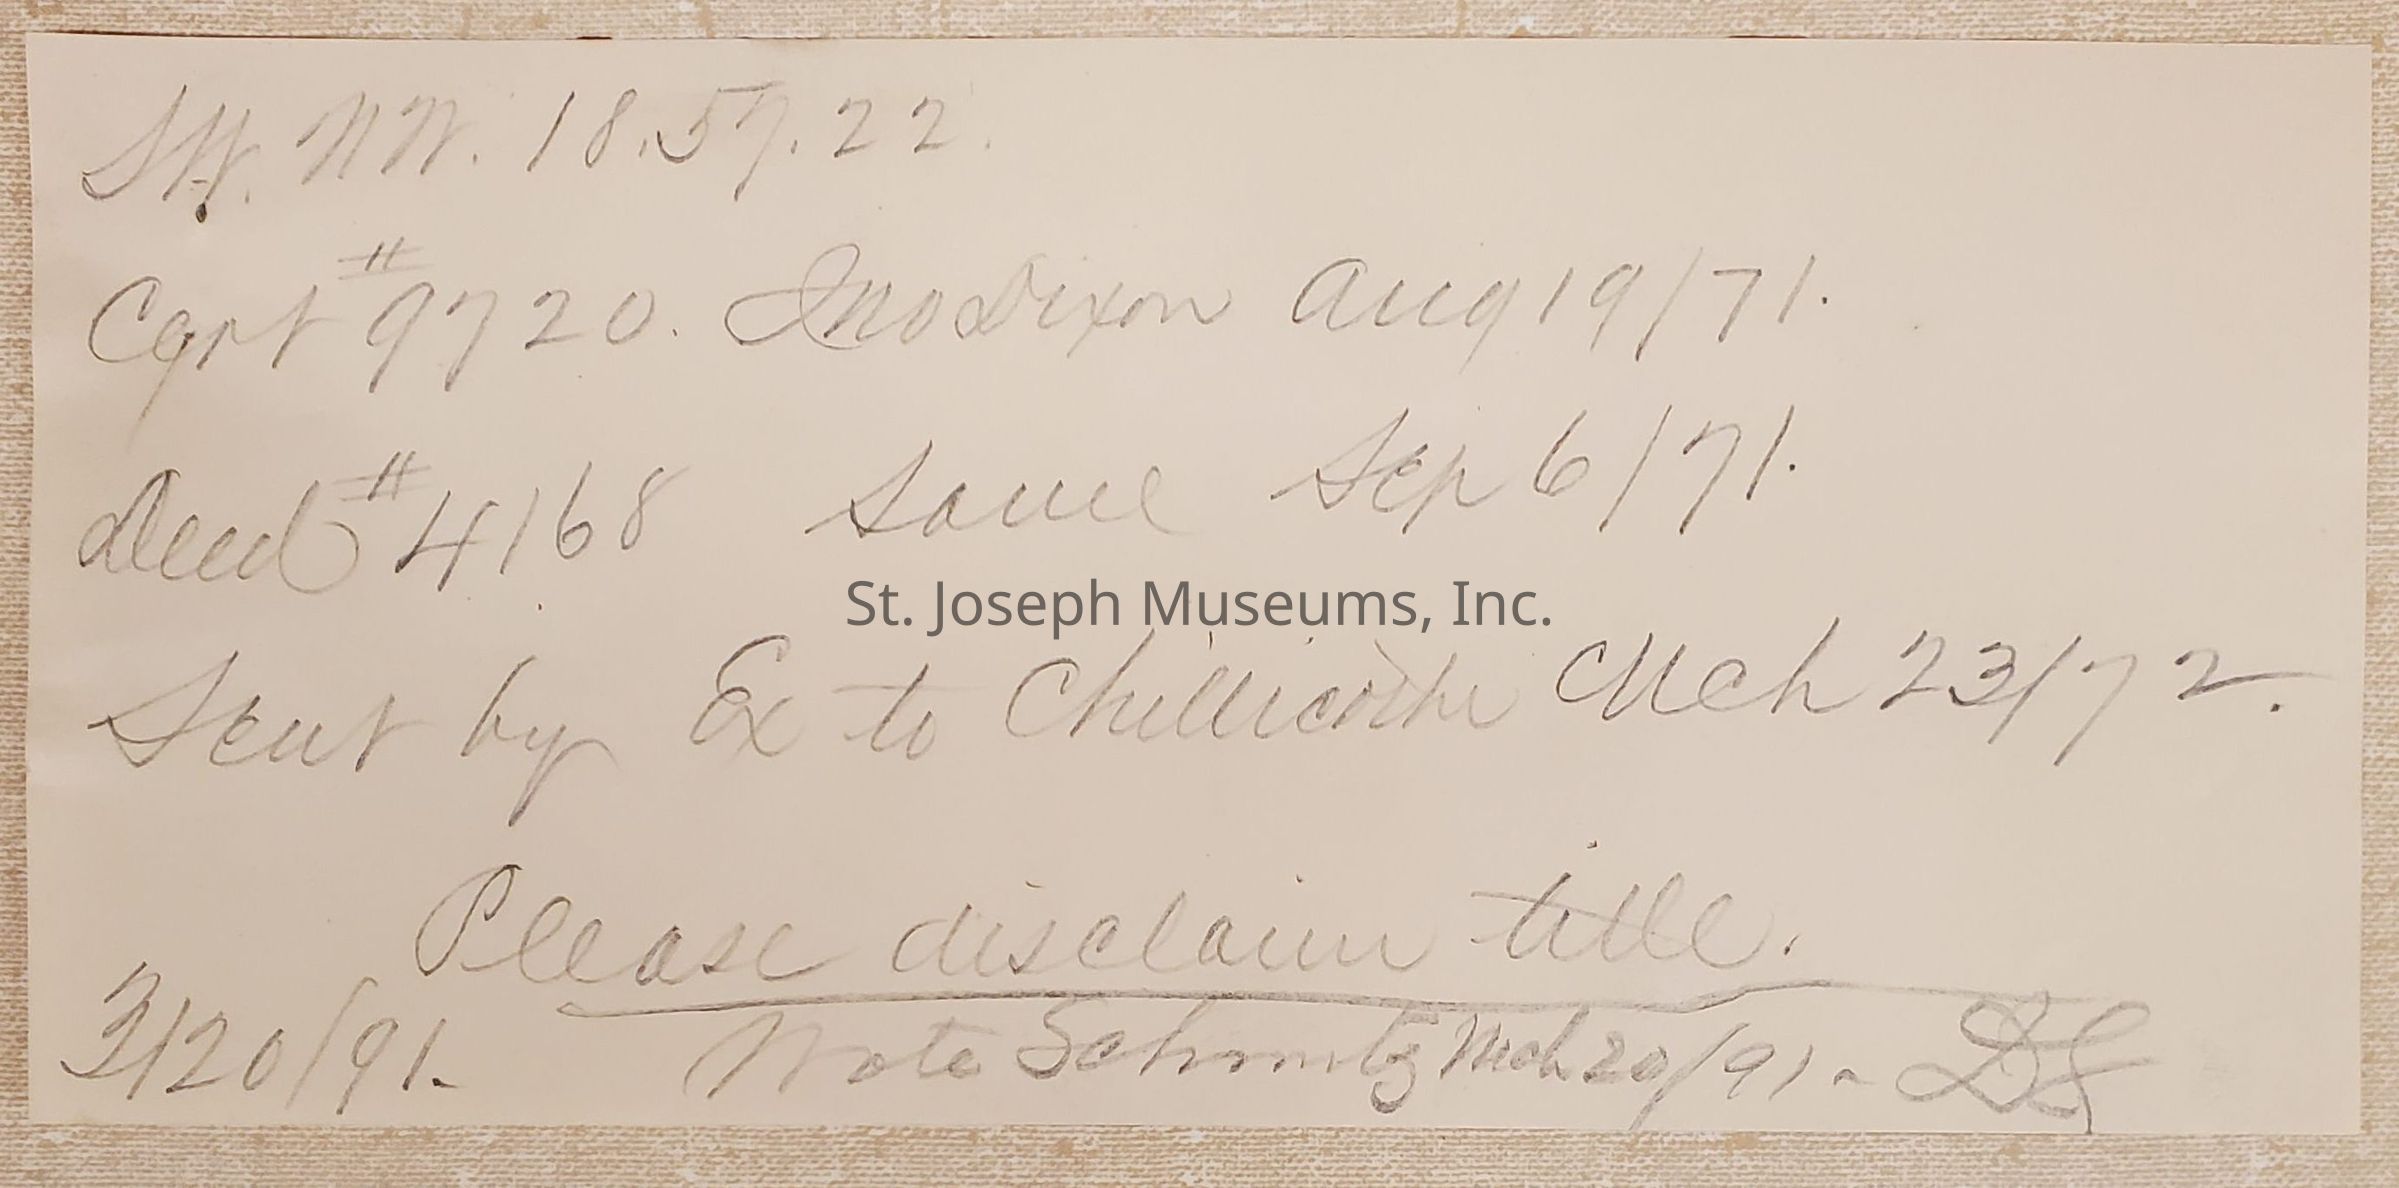 SW. NW. 18.57.22.
Cqrt #9720. Jno Dixon Aug 19/71.
Deed #4168 Same Sep 6/71.
St. Joseph Museums, Inc.
Sent by Ex to Chillicothe Mch 23/72.
Please disclaim title.
3/20/91. Wrote Schmitz Mch 20/91-